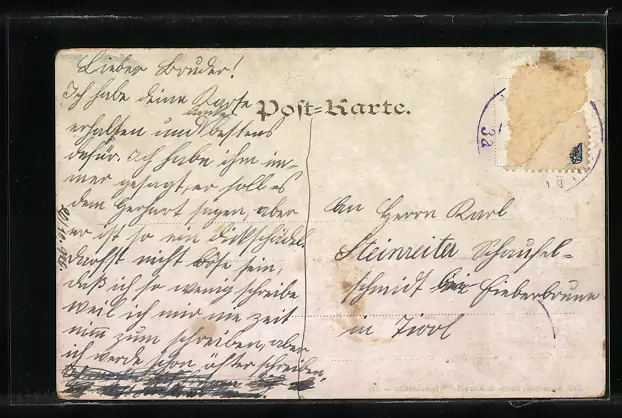 Lieber Bruder!
Ich habe deine Karte
Post-Karte.
erhalten und bestens
dafür. Ich habe ihm im-
mer gesagt, er soll es
dem Gerhart sagen, aber
er ist so ein Dickschädel
darfst nicht böse sein,
daß ich so wenig schreibe
weil ich mir nie Zeit
nimm zum schreiben, aber
ich werde schon öfter schreiben.
An Herrn Karl
Steinreiter Schaufel-
schmidt bei Fieberbrunn
in Tirol